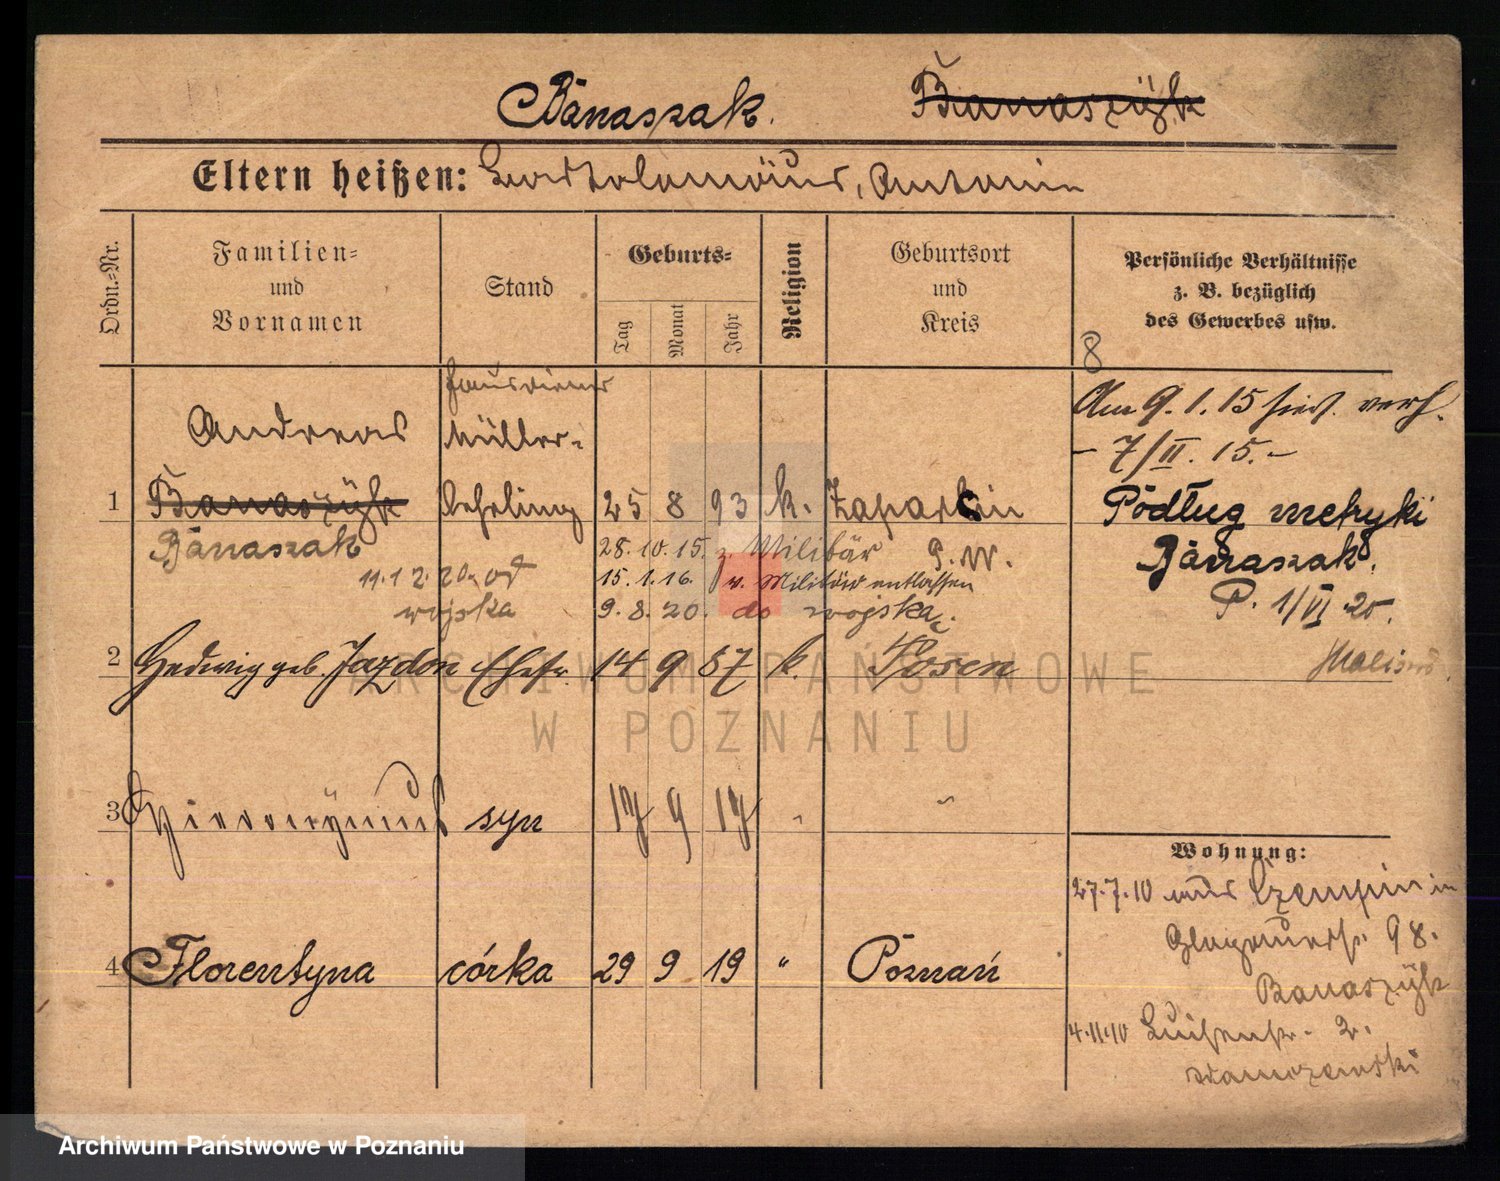 Banaszak. Banaszÿk
Eltern heißen: Bartolomäus, Antonie
Ordn.=Nr.
Familien=
und
Vornamen
Stand
Geburts=
Tag
Monat
Jahr
Religion
Geburtsort
und
Kreis
Persönliche Verhältnisse
z. B. bezüglich
des Gewerbes usw.
8
Hausdiener
Andreas Müller-
1 Banaszÿk Lehrling 25 8 93 k. Zaparcin
Banaszak
11.12.20. od
wojska
28.10.15. z. Militär P. W.
15.1.16. v. Militär entlassen
9.8.20. do wojska
Am 9.1.15 hier verh.
- 7/II. 15. -
Podług metryki
Banaszak.
P. 1/VI 25.
2 Hedwig geb. Jazdon Ehefr. 14 9 87 k. Posen
3 Hieronÿmus syn 17 9 17 "
4 Florentyna córka 29 9 19 " Poznań
Wohnung:
27.7.10 aus Czempin in
98.
Banaszÿk
4.11.10 Luisenstr. 2.
ARCHIWUM PAŃSTWOWE
W POZNANIU
Archiwum Państwowe w Poznaniu